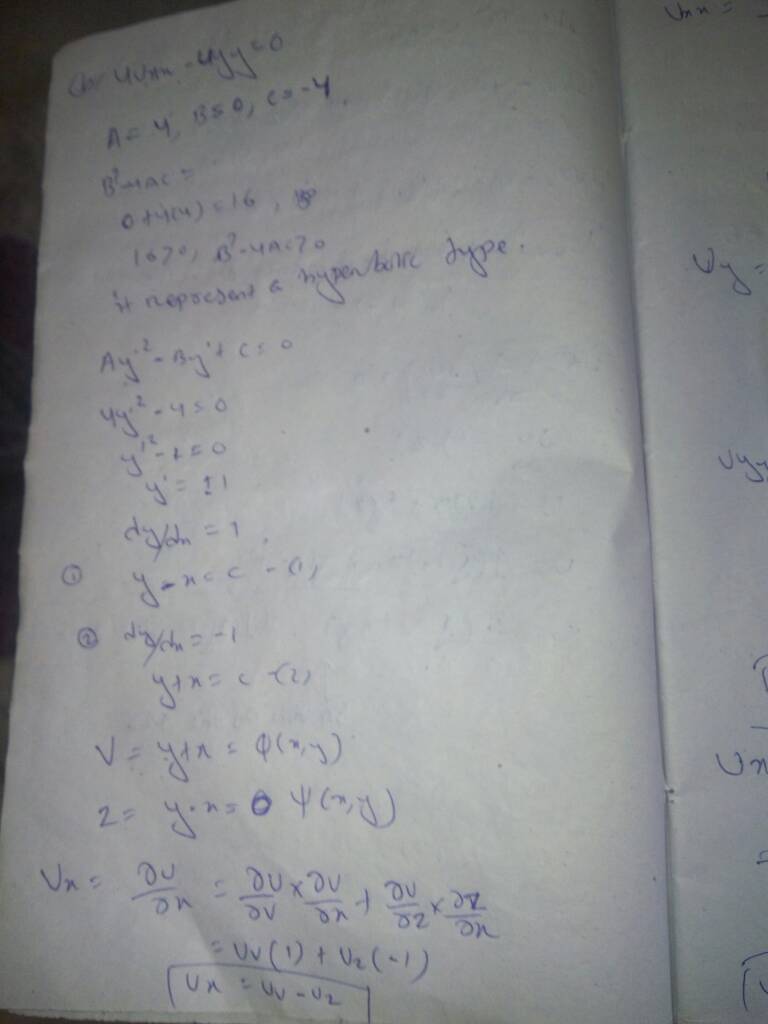 (b) 4Uxx - 4yy = 0
A = 4, B = 0, C = -4.
B²-4AC =
0+4(4) = 16,
16>0, B²-4AC>0
it represent a hyperbolic type.
Ay'² - By' + C = 0
4y'² - 4 = 0
y'² - 1 = 0
y' = ±1
dy/dx = 1
① y - x = c - (1)
② dy/dx = -1
y+x = c - (2)
V = y+x = φ(x,y)
Z = y-x = ψ(x,y)
Ux = ∂U/∂x = ∂U/∂V × ∂V/∂x + ∂U/∂Z × ∂Z/∂x
= Uv(1) + Uz(-1)
Ux = Uv - Uz
Uxx =
Uy =
Uyy
Ux
=